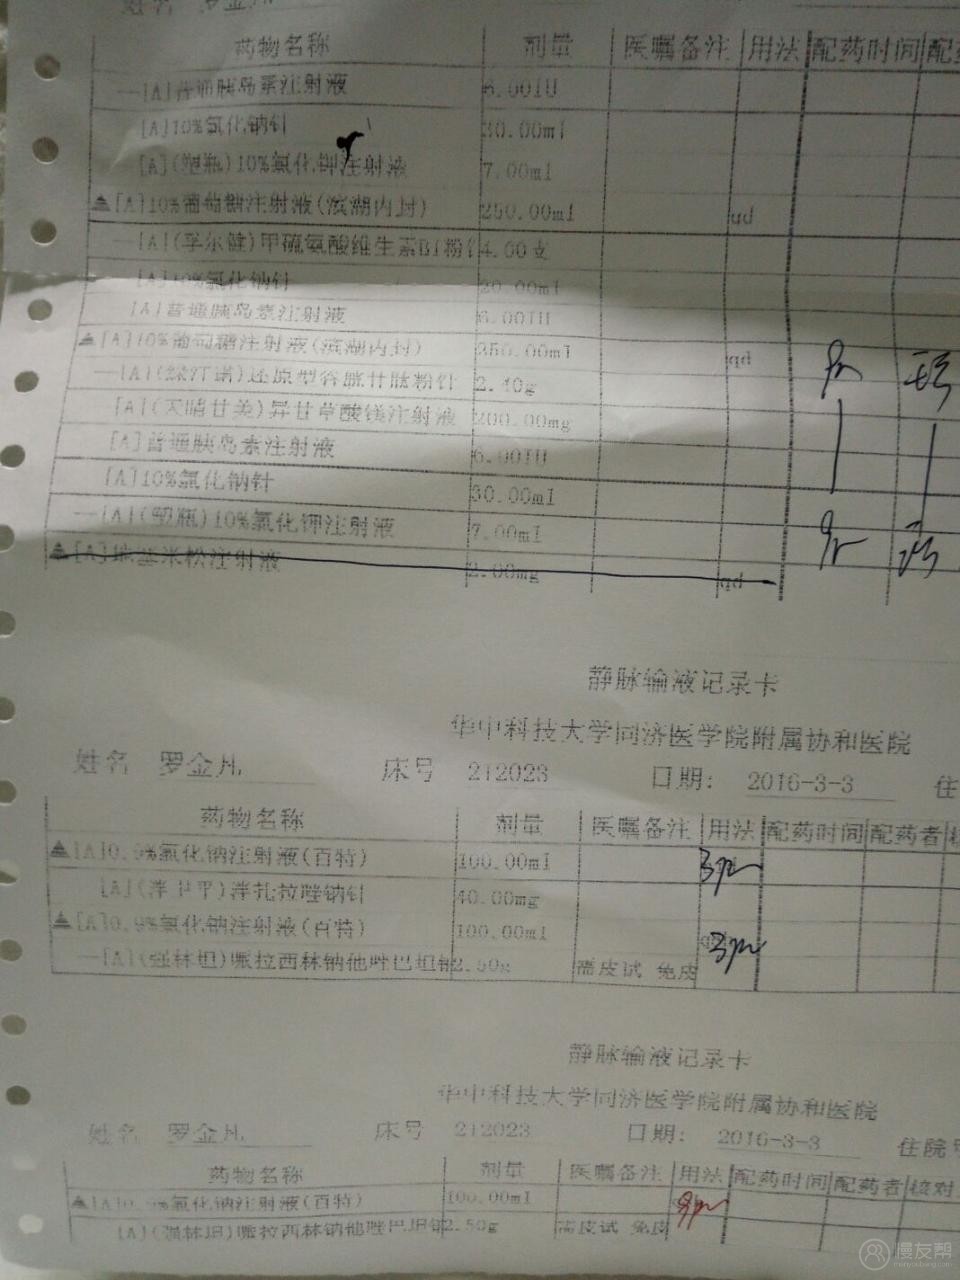 姓名 罗金凡
药物名称 剂量 医嘱备注 用法 配药时间 配药
[A]普通胰岛素注射液 6.00IU
[A]10%氯化钠针 30.00ml
[A](塑瓶)10%氯化钾注射液 7.00ml
[A]10%葡萄糖注射液(滨湖内封) 250.00ml qd
[A](孚尔健)甲硫氨酸维生素B1粉针 4.00支
[A]10%氯化钠针 20.00ml
[A]普通胰岛素注射液 6.00IU
[A]10%葡萄糖注射液(滨湖内封) 250.00ml qd
[A](绿汀诺)还原型谷胱甘肽粉针 2.40g
[A](天晴甘美)异甘草酸镁注射液 200.00mg
[A]普通胰岛素注射液 6.00IU
[A]10%氯化钠针 30.00ml
[A](塑瓶)10%氯化钾注射液 7.00ml
[A]地塞米松注射液 2.00mg qd
静脉输液记录卡
华中科技大学同济医学院附属协和医院
姓名 罗金凡 床号 212023 日期: 2016-3-3 住
药物名称 剂量 医嘱备注 用法 配药时间 配药者 核
[A]0.9%氯化钠注射液(百特) 100.00ml 3pm
[A](泮卫平)泮托拉唑钠针 40.00mg
[A]0.9%氯化钠注射液(百特) 100.00ml 3pm
[A](强林坦)哌拉西林钠他唑巴坦钠 2.50g 需皮试 免皮
静脉输液记录卡
华中科技大学同济医学院附属协和医院
姓名 罗金凡 床号 212023 日期: 2016-3-3 住院号
药物名称 剂量 医嘱备注 用法 配药时间 配药者 核对
[A]0.9%氯化钠注射液(百特) 100.00ml 9pm
[A](强林坦)哌拉西林钠他唑巴坦钠 2.50g 需皮试 免皮
漫友帮